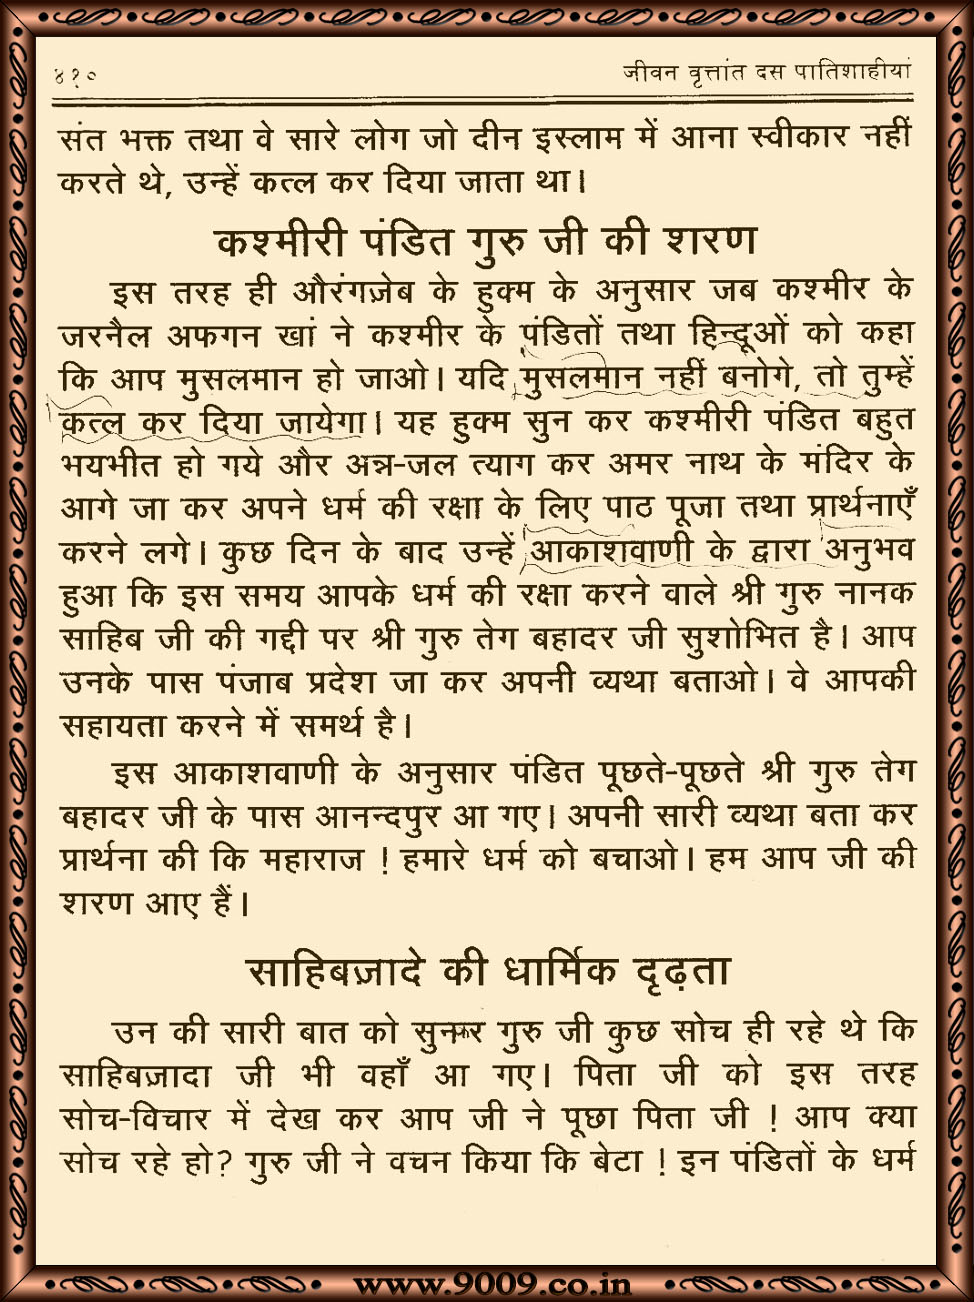 ४१०
जीवन वृत्तांत दस पातिशाहीयां
संत भक्त तथा वे सारे लोग जो दीन इस्लाम में आना स्वीकार नहीं
करते थे, उन्हें कत्ल कर दिया जाता था।
कश्मीरी पंडित गुरु जी की शरण
इस तरह ही औरंगज़ेब के हुक्म के अनुसार जब कश्मीर के
जरनैल अफगन खां ने कश्मीर के पंडितों तथा हिन्दूओं को कहा
कि आप मुसलमान हो जाओ। यदि मुसलमान नहीं बनोगे, तो तुम्हें
कत्ल कर दिया जायेगा। यह हुक्म सुन कर कश्मीरी पंडित बहुत
भयभीत हो गये और अन्न-जल त्याग कर अमर नाथ के मंदिर के
आगे जा कर अपने धर्म की रक्षा के लिए पाठ पूजा तथा प्रार्थनाएँ
करने लगे। कुछ दिन के बाद उन्हें आकाशवाणी के द्वारा अनुभव
हुआ कि इस समय आपके धर्म की रक्षा करने वाले श्री गुरु नानक
साहिब जी की गद्दी पर श्री गुरु तेग बहादर जी सुशोभित है। आप
उनके पास पंजाब प्रदेश जा कर अपनी व्यथा बताओ। वे आपकी
सहायता करने में समर्थ है।
इस आकाशवाणी के अनुसार पंडित पूछते-पूछते श्री गुरु तेग
बहादर जी के पास आनन्दपुर आ गए। अपनी सारी व्यथा बता कर
प्रार्थना की कि महाराज ! हमारे धर्म को बचाओ। हम आप जी की
शरण आए हैं।
साहिबज़ादे की धार्मिक दृढ़ता
उन की सारी बात को सुनकर गुरु जी कुछ सोच ही रहे थे कि
साहिबज़ादा जी भी वहाँ आ गए। पिता जी को इस तरह
सोच-विचार में देख कर आप जी ने पूछा पिता जी ! आप क्या
सोच रहे हो? गुरु जी ने वचन किया कि बेटा ! इन पंडितों के धर्म
www.9009.co.in